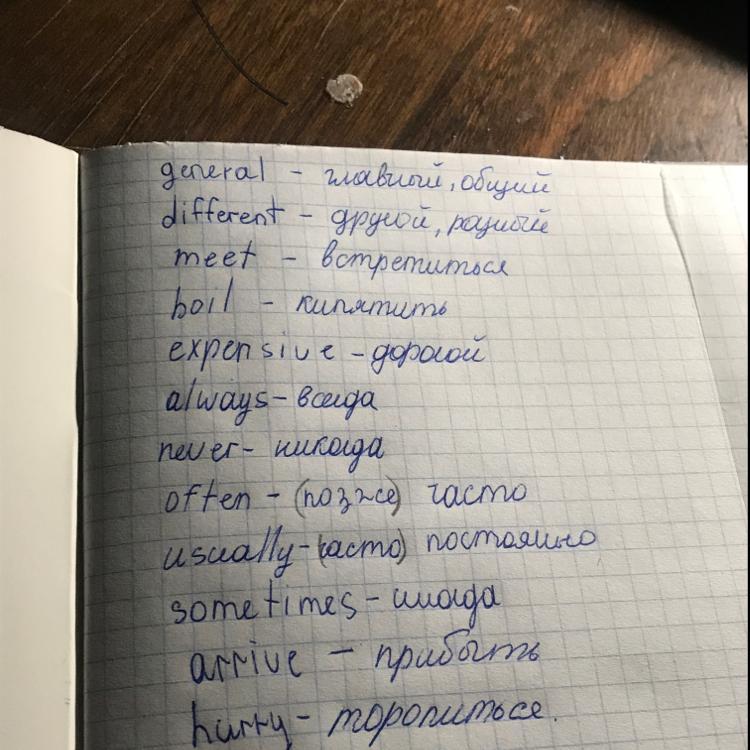 general - главный, общий
different - другой, разный
meet - встретиться
boil - кипятить
expensive - дорогой
always - всегда
never - никогда
often - (позже) часто
usually - (часто) постоянно
sometimes - иногда
arrive - прибыть
hurry - торопиться.